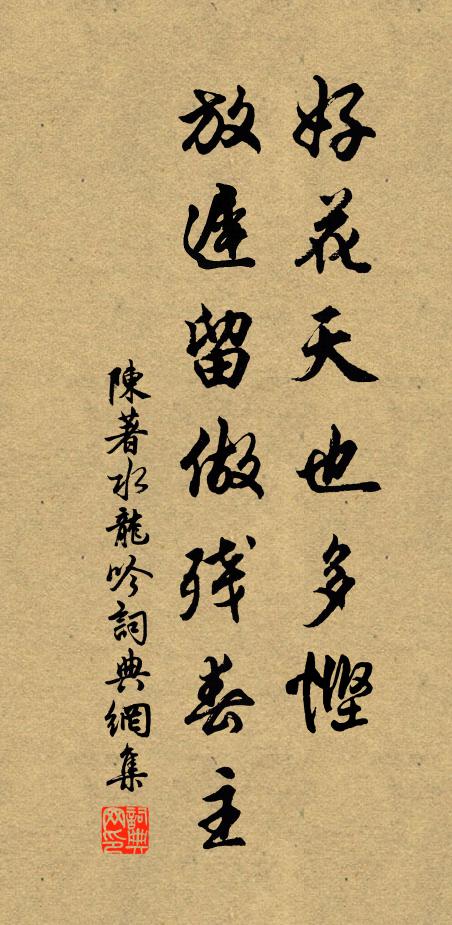 好花天也多慳
放遲留做殘春主
陳著水龍吟詞典網集
詞典網印